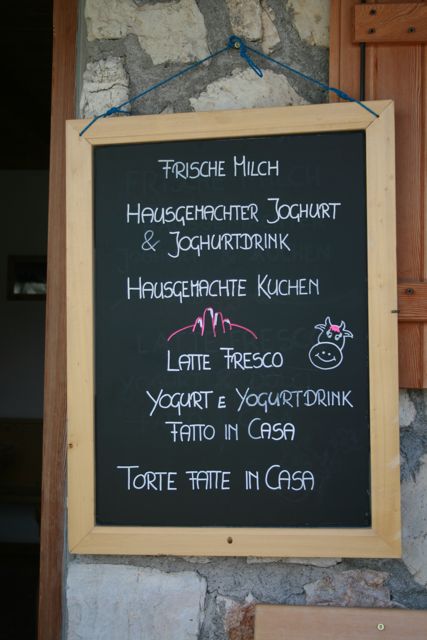 Frische Milch
Hausgemachter Joghurt
& Joghurtdrink
Hausgemachte Kuchen
Latte Fresco
Yogurt e Yogurtdrink
Fatto in Casa
Torte fatte in Casa